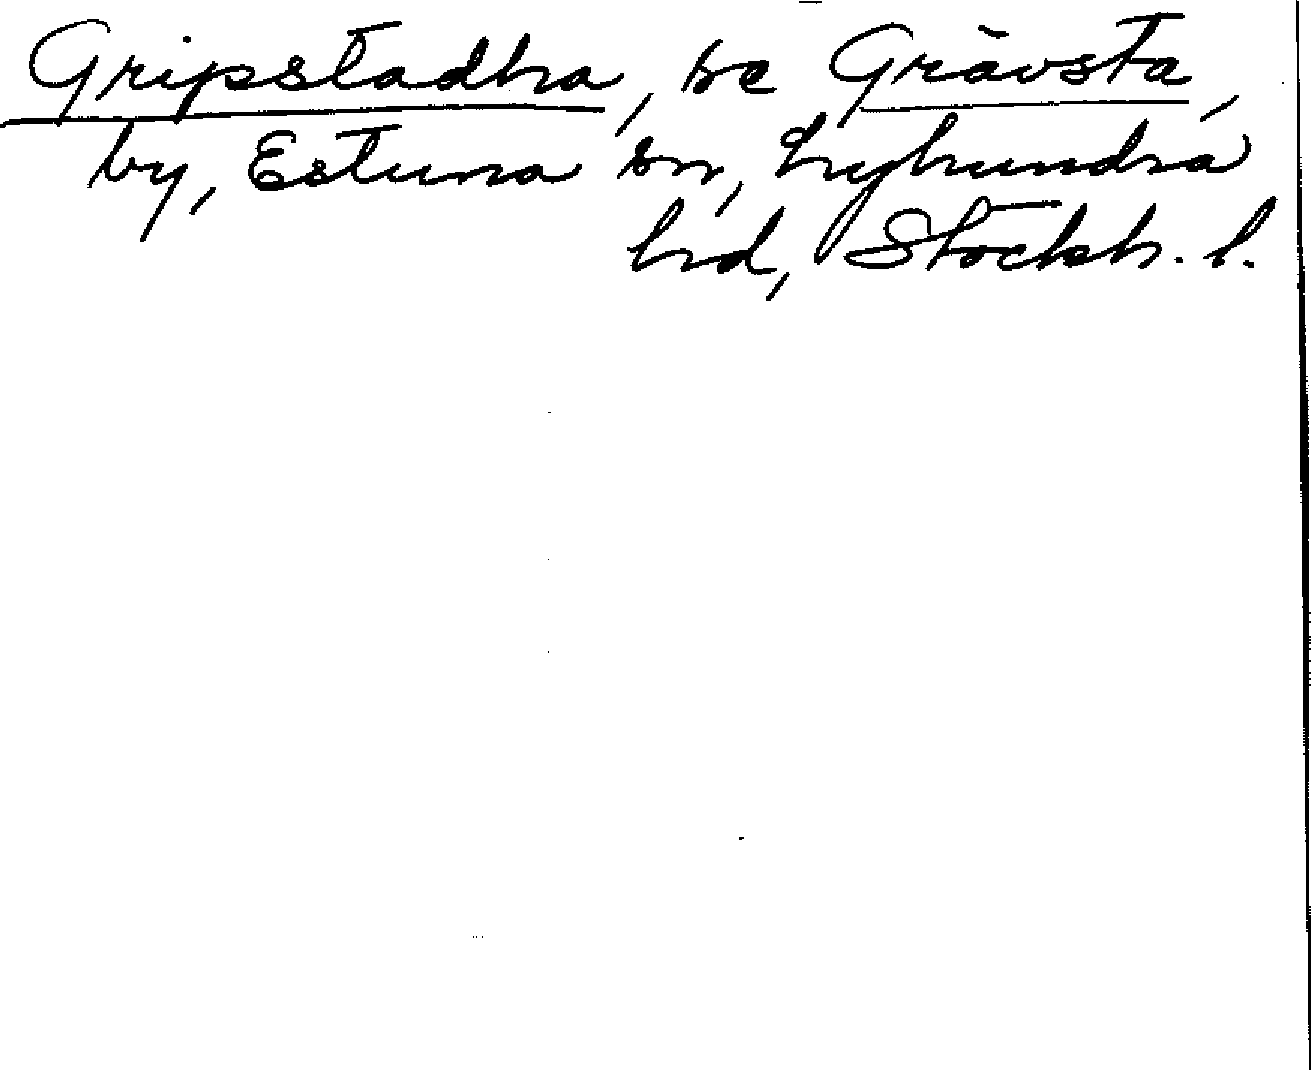 Gripstadha, se Grävsta,
by, Estuna sn, Lyhundra
hd, Stockh. l.